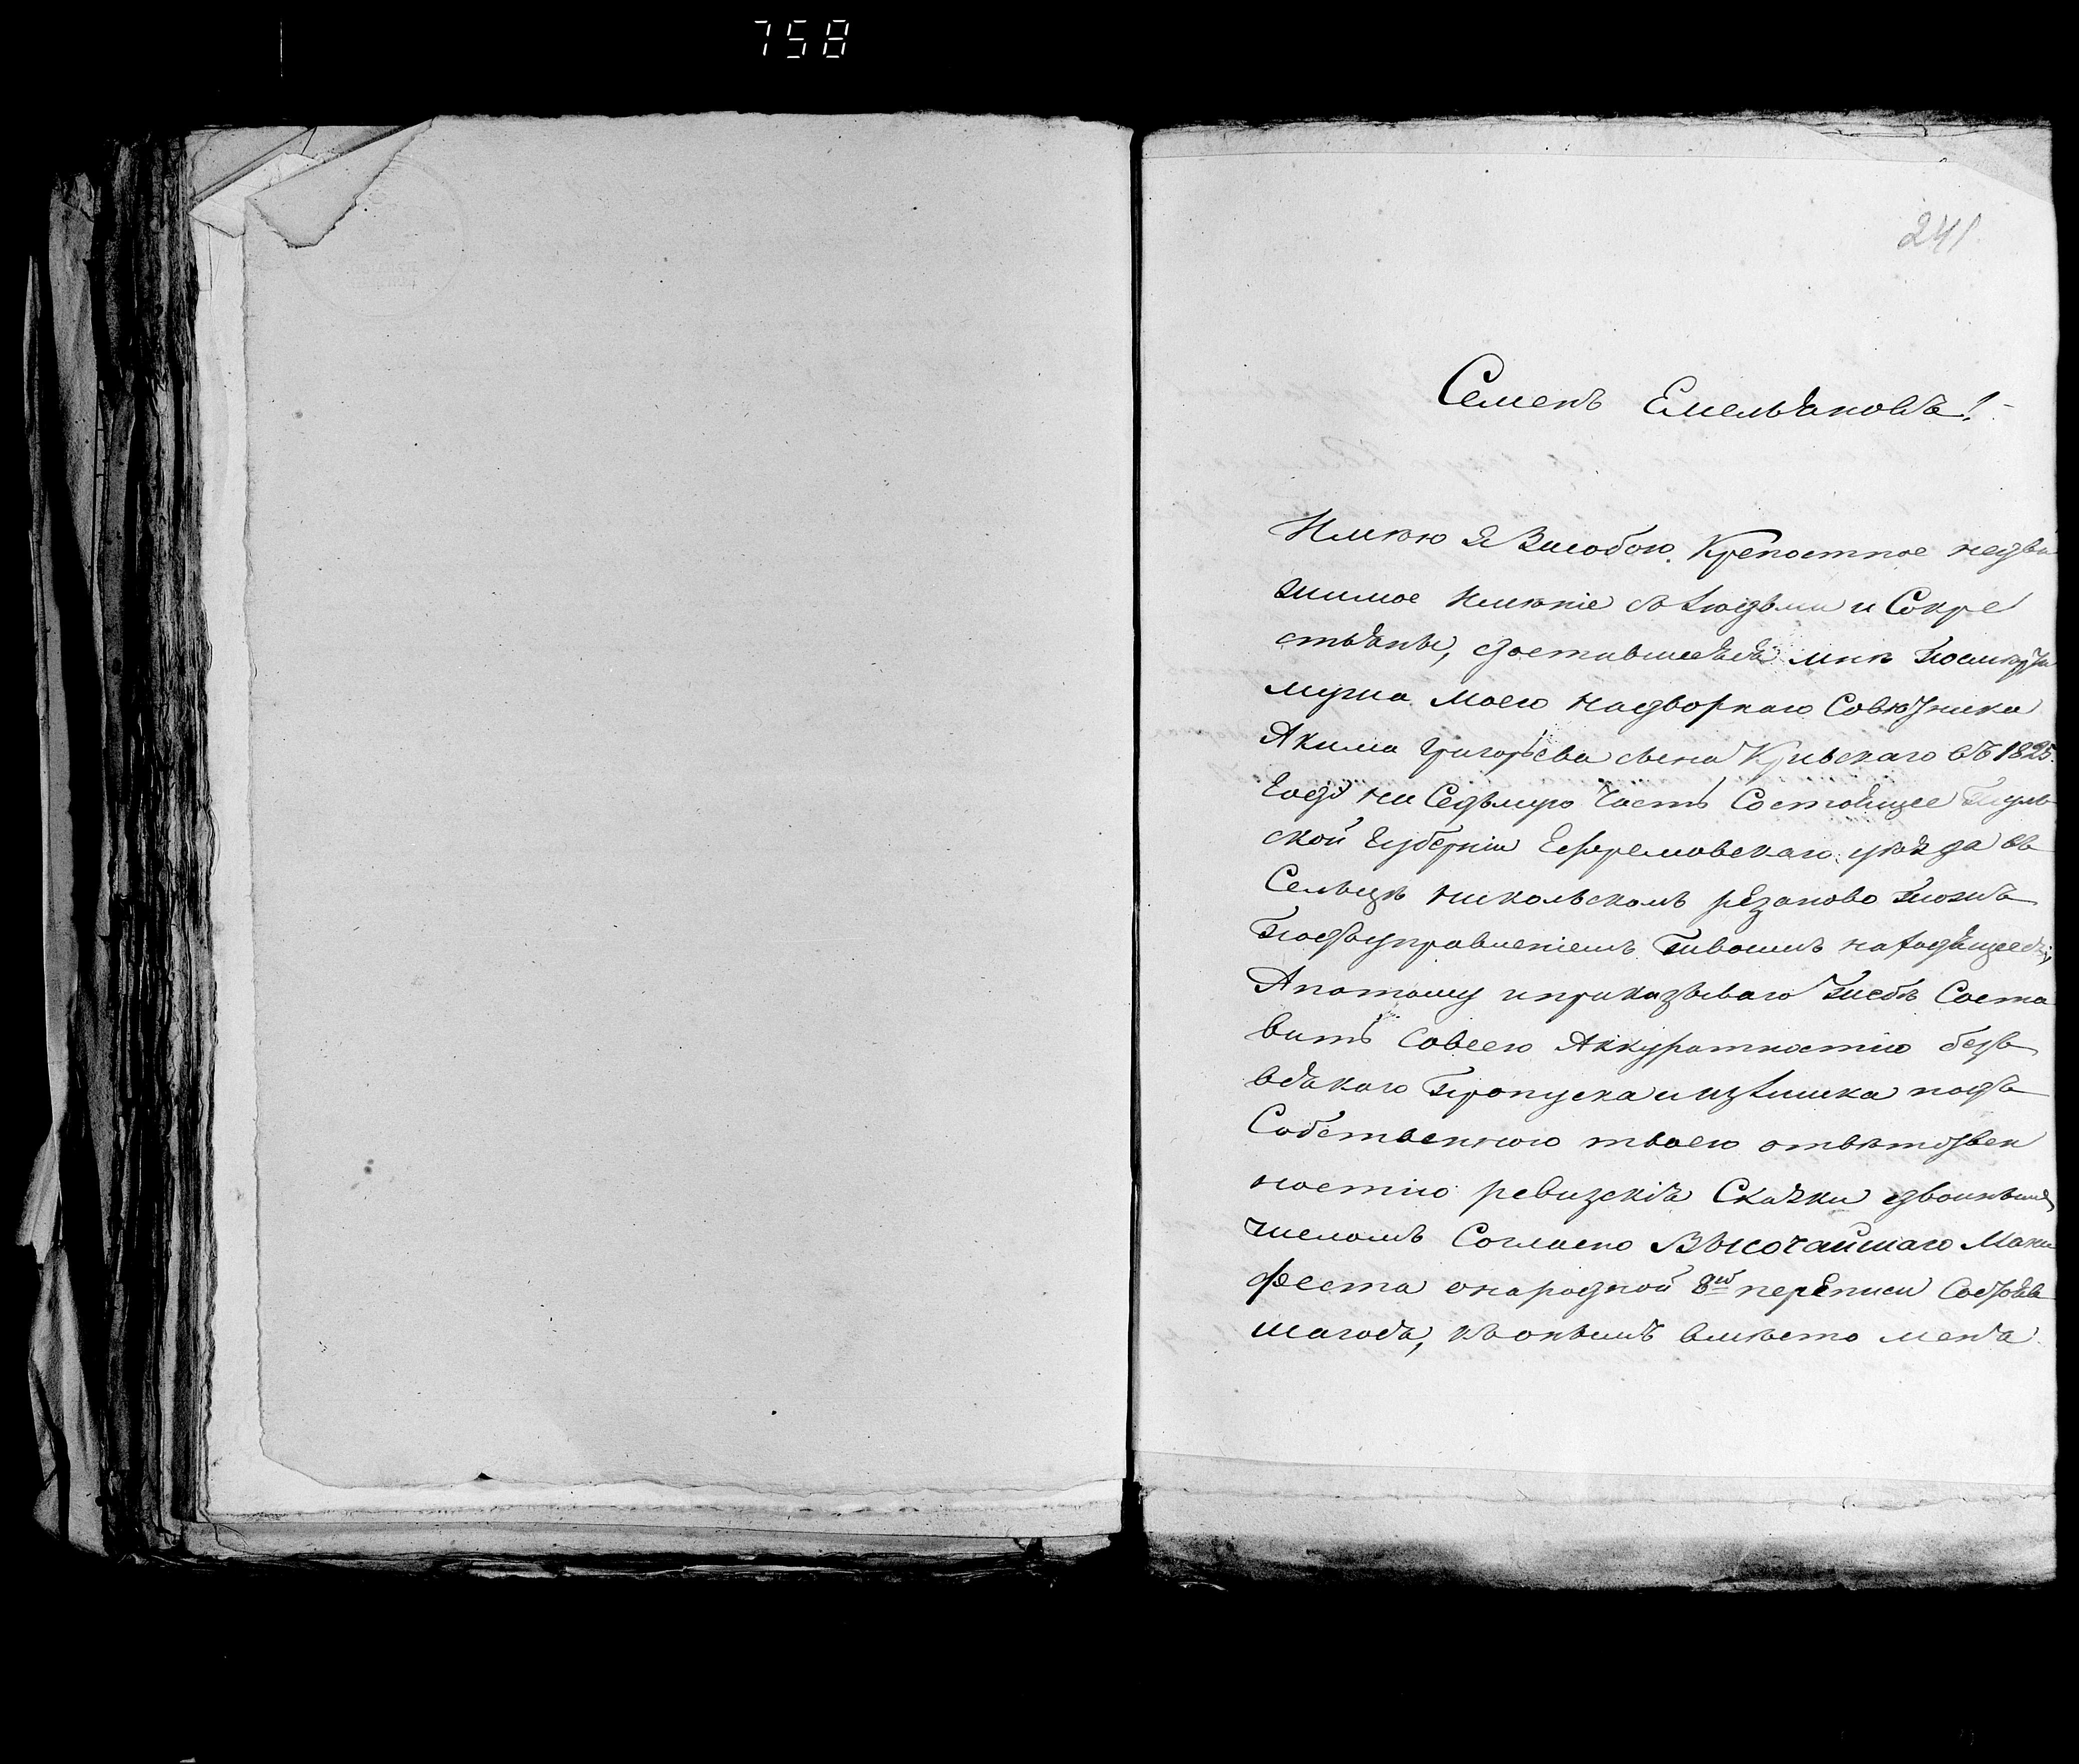 758
241
Семенъ Емельяновъ!
Имѣю я Засобою Крепостное недви
жимое имѣніе съ людьми и Сокре
стьяны, доставшееся мнѣ послѣ
мужа моего надворнаго Совѣтника
Акима Григорьева сына Кривскаго въ 1825.
Годѣ на Седьмую Часть Состоящее Туль
ской Губерніи Ефремовскаго уѣзда въ
Сельцѣ никольскомъ рѣзаново тожъ
Подъуправленіемъ Твоимъ находящееся,
Апотому и приказываю Тебѣ Соста
вить Совсею Аккуратностію безъ
всякаго Пропуска и излишка подъ
Собственною твоею отвѣтствен
ностію ревизскія Сказки двоинымъ
числомъ Согласно Высочайшаго Мани
феста онародной 8й переписи Состояв
шагося, къ онымъ вмѣсто меня